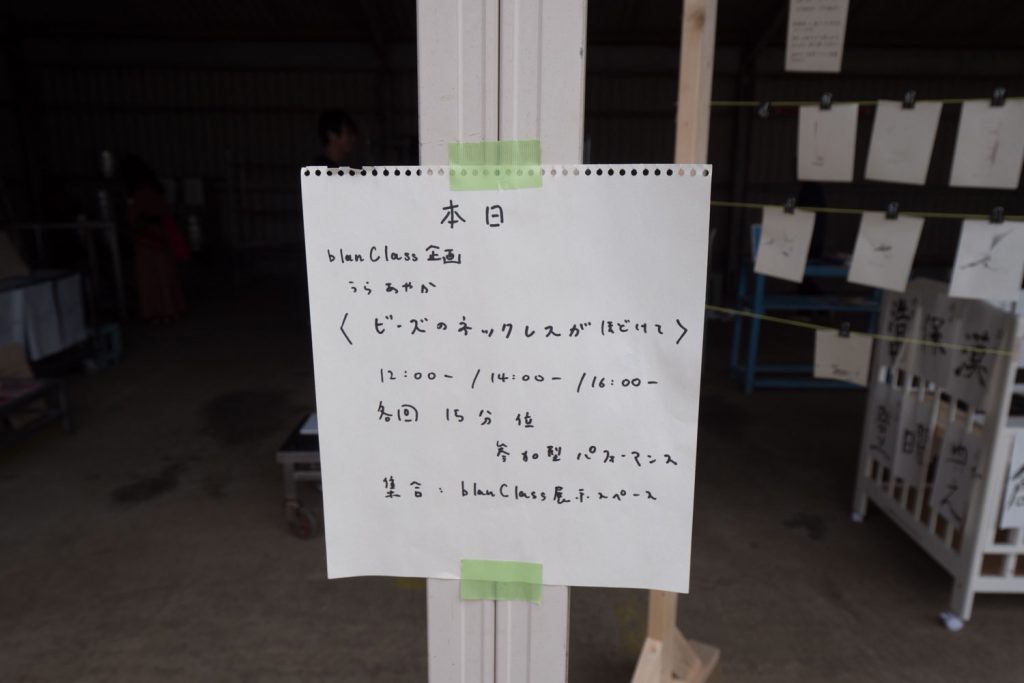 本日
blanClass企画
うらあやか
〈ビーズのネックレスがほどけて〉
12:00- /14:00- /16:00-
各回 15分位
参加型パフォーマンス
集合:blanClass展示スペース